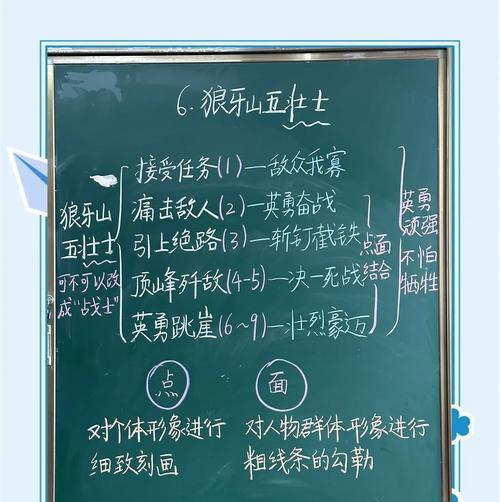 6.狼牙山五壮士
接受任务(1)—敌众我寡
痛击敌人(2)—英勇奋战
引上绝路(3)—斩钉截铁
顶峰歼敌(4-5)—决一死战
英勇跳崖(6~9)—壮烈豪迈
狼牙山
五壮士
可不可以改
成“战士”
点面
结合
英勇
顽强
不怕
牺牲
点
面
对个体形象进行
细致刻画
对人物群体形象进行
粗线条的勾勒